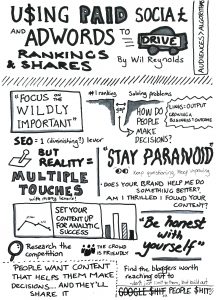 U$ING PAID SOCIAL
AND ADWORDS TO DRIVE
RANKINGS
& SHARES
By Wil Reynolds
AUDIENCES > ALGORITHMS
"FOCUS ON THE
WILDLY
IMPORTANT"
#1 ranking
Solving problems
HOW DO
PEOPLE
MAKE
DECISIONS?
LINKS: OUTPUT
GROWING A
BUSINESS: OUTCOME
SEO = 1 (diminishing?) lever
BUT
REALITY =
MULTIPLE
TOUCHES
with many levers!
"STAY PARANOID"
Keep questioning, keep improving
• DOES YOUR BRAND HELP ME DO
SOMETHING BETTER?
• AM I THRILLED I FOUND YOUR
CONTENT?
SET YOUR
CONTENT UP
FOR ANALYTIC
SUCCESS
"Be honest
with
yourself"
Research the
competition
THE CROWD
IS FRIENDLY
PEOPLE WANT CONTENT
THAT HELPS THEM MAKE
DECISIONS... AND THEY'LL
SHARE IT
Find the bloggers worth
reaching out to
GOOGLE $H!T, PEOPLE $H!T!